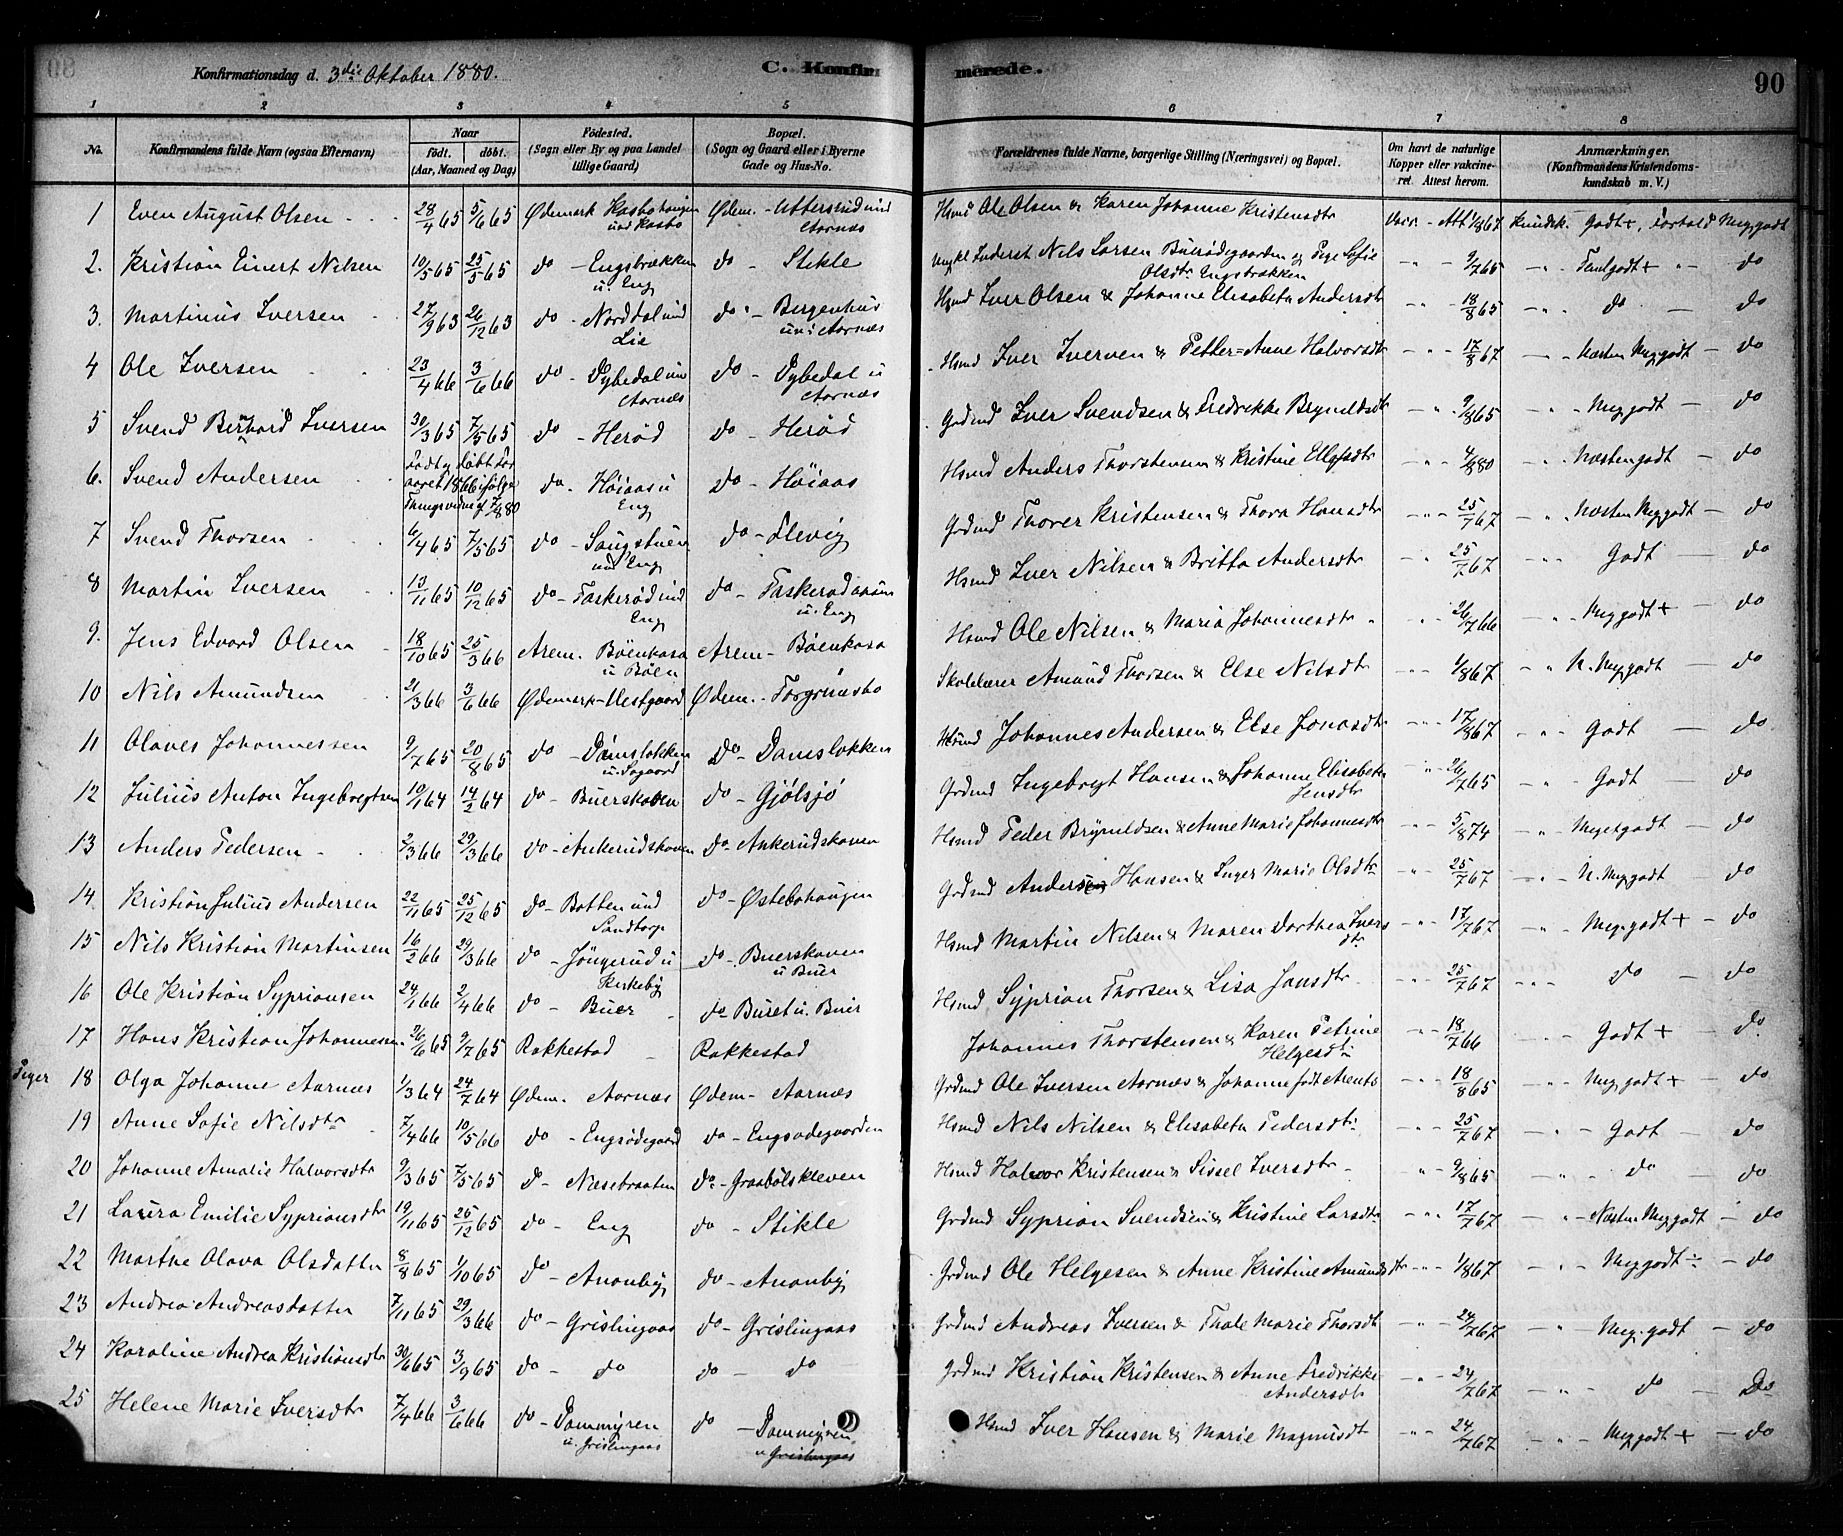 Konfirmationsdag d. 3die Oktober 1880.
C. Konfirmerede.
90
1 2 3 4 5 6 7 8
No.
Konfirmandens fulde Navn (ogsaa Efternavn)
Naar
födt. döbt.
(Aar, Maaned og Dag)
Födested.
(Sogn eller By og paa Landet tillige Gaard)
Bopæl.
(Sogn og Gaard eller i Byerne Gade og Hus-No.
Forældrenes fulde Navne, borgerlige Stilling (Næringsvei) og Bopæl.
Om havt de naturlige Kopper eller vakcineret. Attest herom.
Anmærkninger.
(Konfirmandens Kristendomskundskab m. V.)
1 Even August Olsen 28/4 65 5/6 65 Ødemark Kasbohaugen und Kasbo Ødem. - Utterstid und Aarnæs Hsmd Ole Olsen & Karen Johanne Kristensdtr Vac. - Att 1/8 67 Kundsk. Godt+, Forhold Meg.godt
2. Kristian Einert Nilsen 10/5 65 25/5 65 do - Engsbrækken u. Eng do - Stikle Nils Larsen Buerødegaarden & Pige Sofie Olsdtr Engsbrækken - " - 9/7 65 - " - Taalgodt+ " - do
3. Martinus Iversen 27/9 63 26/12 63 do - Norddal und Lie do - Bergenhus und Aarnæs Hsmd Iver Olsen & Johanne Elisabeth Andersdtr - " - 18/8 65 - " - do - do
4 Ole Iversen 23/4 66 3/6 66 do - Dybedal und Aarnæs do - Dybedal u Aarnæs Hsmd Iver Iversen & Petter=Anne Halvorsdtr - " - 17/8 67 - " - Næsten Meg.godt - do
5 Svend Bernhard Iversen 30/3 65 7/5 65 do - Herød do - Herød Grdmd Iver Svendsen & Fredrikke Brynildsdtr - " - 9/8 65 - " - Meg.godt - do
6. Svend Andersen Født og døbt før aaret 1866 ifølge Thingsvidne af 7/8 80 do - Høiaas u Eng do - Høiaas Hsmd Anders Thorstensen & Kristine Ellefsdtr - " - 4/8 80 - " - Næstengodt - do
7 Svend Thorsen 6/4 65 7/5 65 do - Saugstuen und Eng do - Flevig Grdmd Thorer Kristensen & Thora Hansdtr - " - 25/7 67 - " - Næsten Meg.godt - do
8 Martin Iversen 13/11 65 10/12 65 do - Faskerød und Eng do - Faskerød u. Eng Hsmd Iver Nilsen & Britta Andersdtr - " - 25/7 67 - " - Godt - do
9. Jens Edvard Olsen 18/10 65 25/3 66 Arem. Böenkasa u Böen Arem - Böenkasa Hsmd Ole Nilsen & Maria Johannesdtr - " - 26/7 66 - " - Meg.godt+ - do
10 Nils Amundsen 21/3 66 3/6 66 Ødemark - Vestgaard Ødem. - Torgrimsbo Skolelærer Amund Thorsen & Else Nilsdtr - " - 1/8 67 - " N. Meg.godt - do
11 Olaves Johannessen 9/7 65 20/8 65 do - Damsløkken u. Sogaard do - Damsløkken Hsmd Johannes Andersen & Else Jonasdtr - " - 17/8 67 - " - Godt - do
12 Julius Anton Ingebregtsen 10/1 64 14/2 64 do - Buerskoven do - Gjølsjø Grdmd Ingebregt Hansen & Johanne Elisabeth Jensdtr - " - 26/7 65 - " - Godt - do
13 Anders Pedersen 2/3 66 29/3 66 do - Ankerudskoven do - Ankerudskoven Hsmd Peder Brynildsen & Anne Marie Johannesdtr - " - 5/8 74 - " - Megetgodt - do
14. Kristian Julius Andersen 22/11 65 25/12 65 do - Botten und Sandtorp do - Østebohaugen Grdmd Anders Hansen & Inger Marie Olsdtr - " - 25/7 67 - " - N. Meg.godt - do
15 Nils Kristian Martinsen 16/2 66 29/3 66 do - Jöngerud u Kirkeby do - Buerskoven u Buer Hsmd Martin Nilsen & Maren Dorthea Iversdtr - " - 17/7 67 - " - Meg.godt+ - do
16 Ole Kristian Syprionsen 24/1 66 2/4 66 do - Buer do - Buret u. Buer Hsmd Syprian Thorsen & Lisa Jansdtr - " - 25/7 67 - " - do - do
17 Hans Kristian Johannessen 26/6 65 9/7 65 Rakkestad Rakkestad Johannes Thorstensen & Karen Petrine Helgesdtr - " - 18/7 66 - " - Godt + - do
Piger 18 Olga Johanne Aarnæs 1/3 64 24/7 64 Ødem. Aarnæs Ødem - Aarnæs Grdmd Ole Iversen Aarnæs & Johanne født Arents - " - 18/8 65 - " - Meg.godt + - do
19 Anne Sofie Nilsdtr 7/4 66 10/5 66 do - Engsødegaard do - Engsødegaarden Hsmd Nils Nilsen & Elisabeth Pedersdtr - " - 25/7 67 - " - Godt - do
20 Johanne Amalie Halvorsdtr 9/3 65 7/5 65 d - Næsebraaten do - Graabölskleven Hsmd Halvor Kristensen & Sissel Iversdtr - " 9/8 65 - " - do - do
21 Laura Emilie Syprionsdtr 19/11 65 26/12 65 do - Eng do - Stikle Grdmd Syprian Svendsen & Kristine Larsdtr - " - 17/7 67 - " - Næsten Meg.godt - do
22 Marthe Olava Olsdatter 8/8 65 1/10 65 do - Ananby do - Ananby Grdmd Ole Helgesen & Anne Kristine Amundsdtr - " - 1/8 67 - " - Meg.godt ÷ - do
23 Andrea Andreasdatter 7/11 65 29/3 66 do - Grislingaas do - Grislingaas Grdmd Andreas Iversen & Thale Marie Thorsdtr - " - 24/7 67 - " - Meg.godt - do
24 Karoline Andrea Kristiansdtr 30/6 65 3/9 65 do - do do - do Grdmd Kristian Kristensen & Anne Fredrikke Andersdtr - " - 24/7 67 - " - do - Do
25 Helene Marie Iversdtr 7/4 66 3/6 66 do - Dammyren u. Grislingaas do - Dammyren u Grislingaas Hsmd Iver Hansen & Marie Magnusdtr - " - 24/7 67 - " - Meg.godt + - do